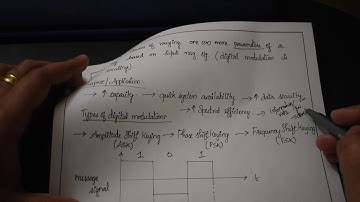 of varying one (or) more parameters of a
based on input msg sig (digital modulation is
Purpose / Application:
→ ↑ capacity → quick system availability → ↑ data security
Types of digital modulation: → ↑ Spectral efficiency →
→ Amplitude Shift Keying → Phase Shift Keying → Frequency Shift Keying
(ASK) (PSK) (FSK)
1 0 1
message
signal
t